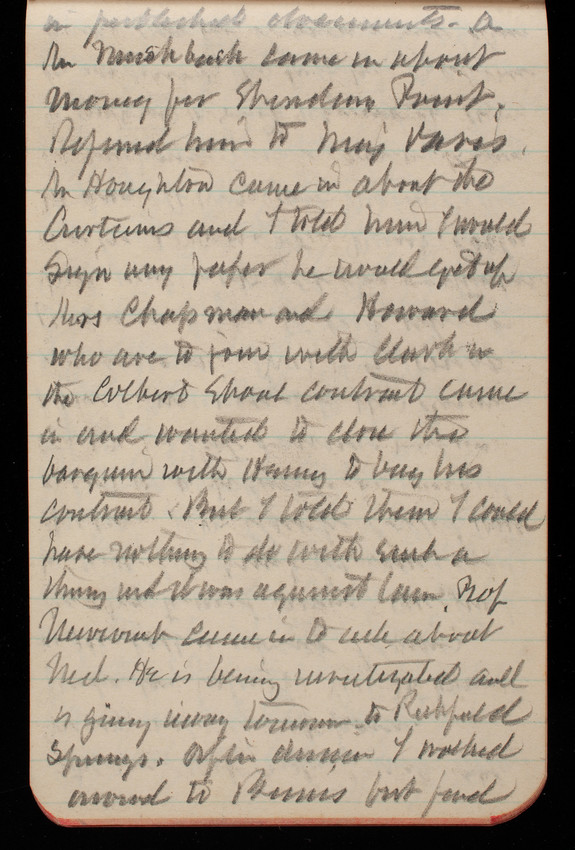 in published documents. A
Mr Mushbach came in about
money for Sheridan Point.
Referred him to Maj Davis.
Mr Houghton came in about the
Curtains and I told him I would
sign any paper he would get up
Mrs Chapman and Howard
who are to join with Clark in
the Colbert Shoal contract came
in and wanted to close the
bargain with Henry to buy his
contract. But I told them I could
have nothing to do with such a
thing and it was against law. Prof
Newcomb came in to ask about
Ned. He is being investigated and
is going away tomorrow to Richfield
Springs. After dinner I walked
around to but find